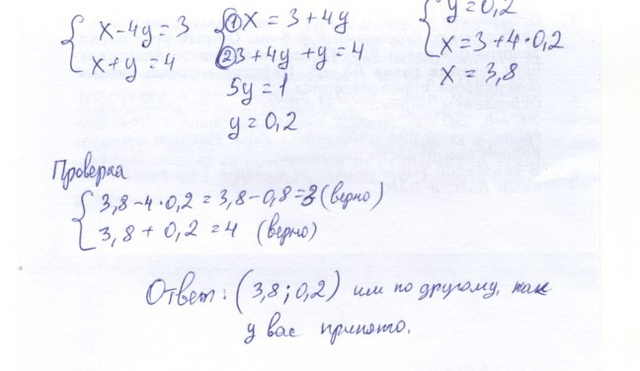 x-4y=3
x+y=4
① x=3+4y
② 3+4y+y=4
5y=1
y=0,2
y=0,2
x=3+4·0,2
x=3,8
Проверка
3,8-4·0,2=3,8-0,8=3(верно)
3,8+0,2=4 (верно)
Ответ: (3,8;0,2) или по другому, как
у вас принято.